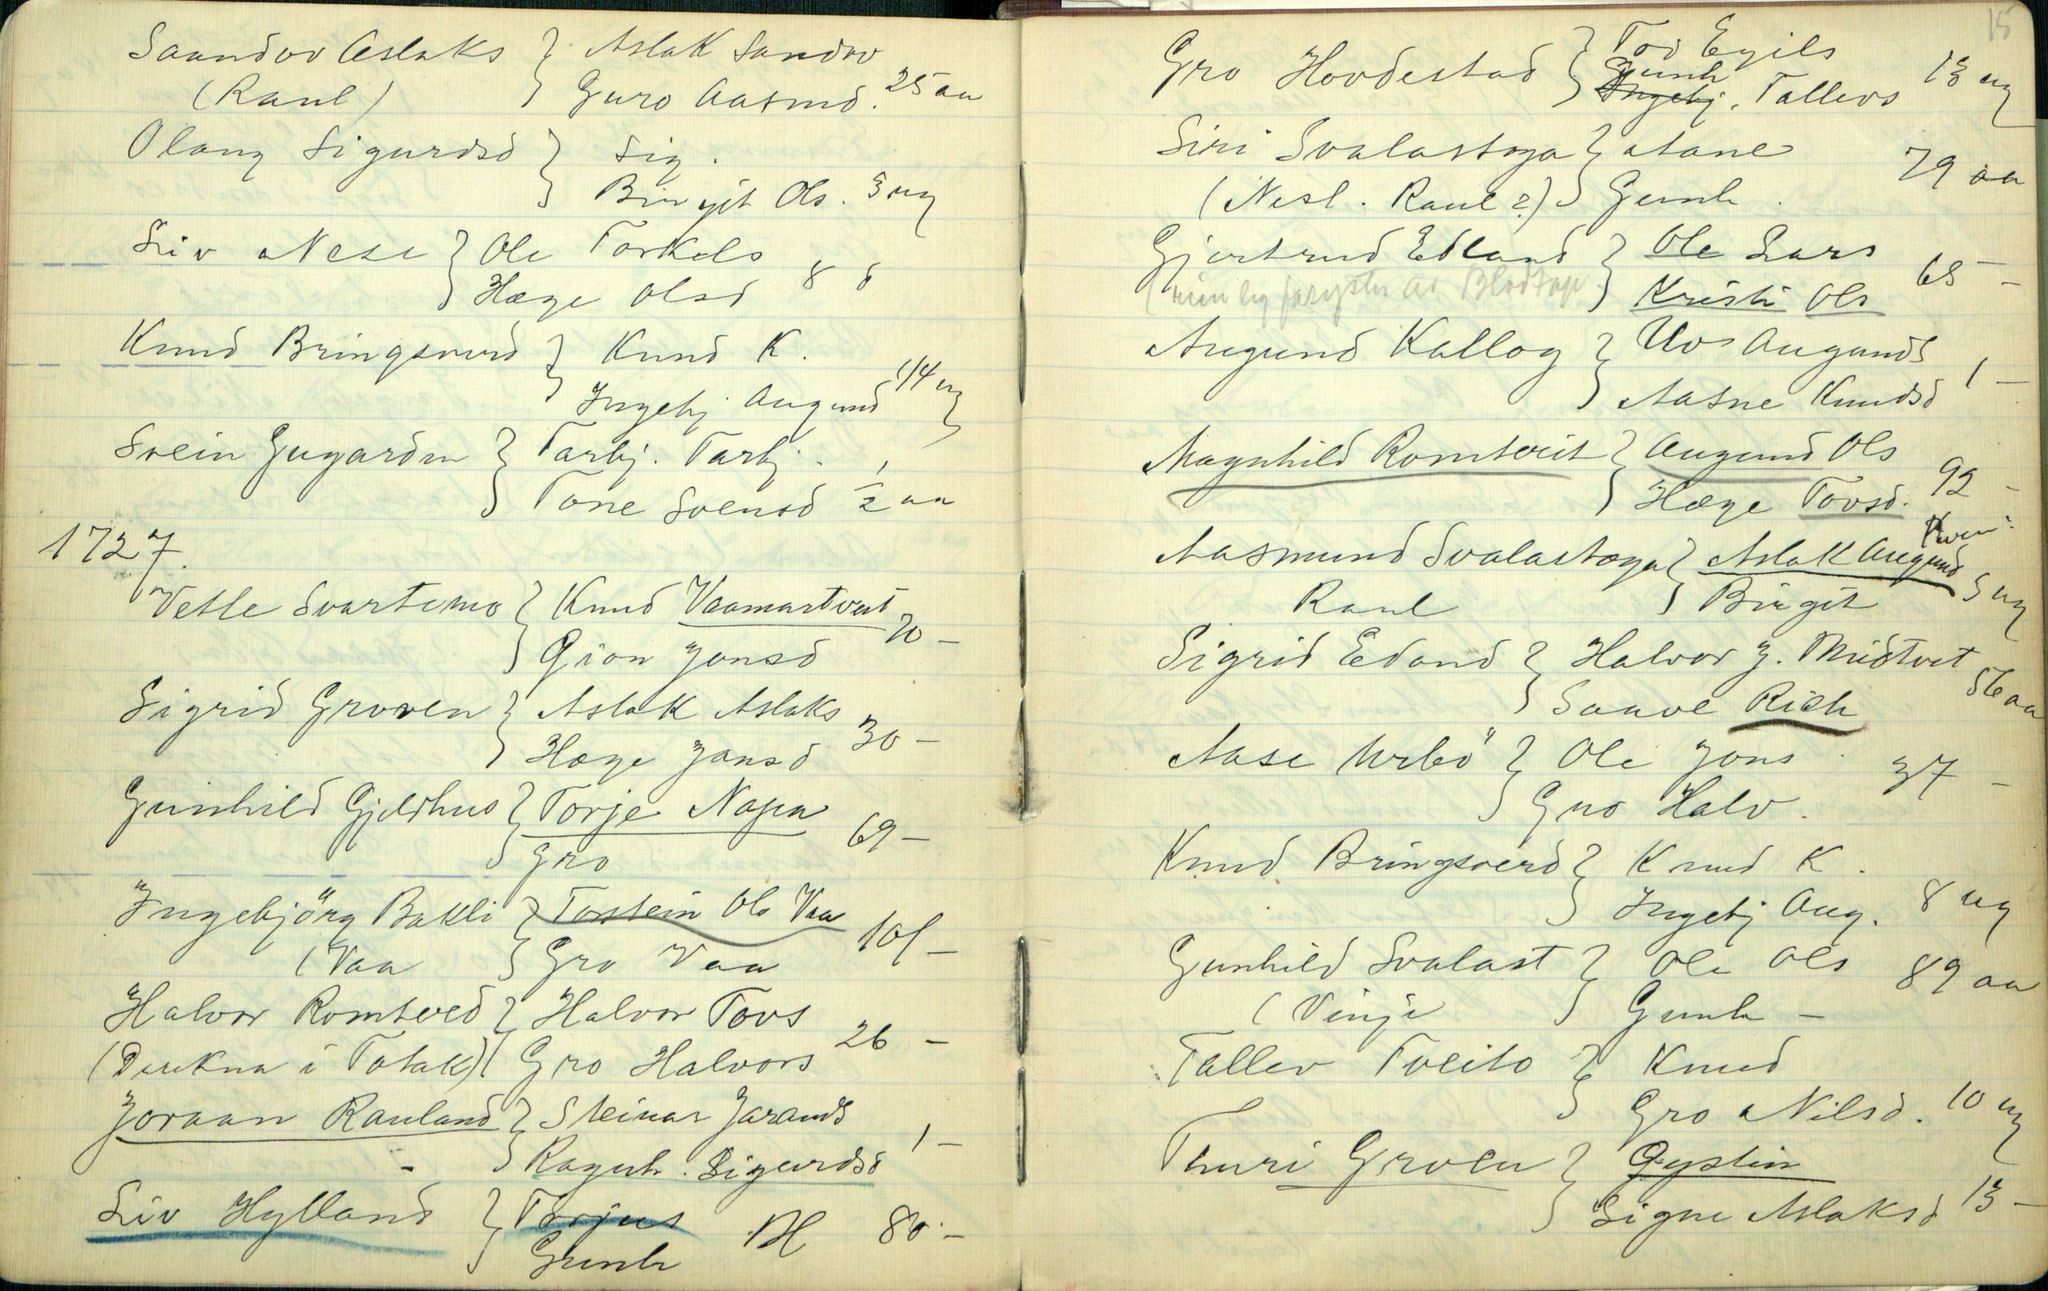 Saandov Aslaks } Aslak Sandov
(Raul) Guro Aasmd. 25 aa
Olaug Sigurdsd } Sig.
Birgit Ols. 3 ug
Liv Nese } Ole Torkels
Hæge Olsd 8 d
Knud Bringsverd } Knud K.
Ingebj Augund 1/4 ug
Svein Gugarden } Tarbj. Tarbj.
Tone Svensd 1/2 aa
1727.
Vetle Svartemo } Knud Vaamartveit
Gion Jonsd 20 –
Sigrid Groven } Aslak Aslaks
Hæge Jonsd 30 –
Gunhild Gjeldhus } Torje Napa
Gro 69 –
Ingebjörg Bakli } Torstein Ols Vaa
(Vaa Gro Vaa 101 –
Halvor Romtved } Halvor Tovs
(Drukna i Totak) Gro Halvors 26 –
Joraan Rauland } Steinar Jarands
– Ragnh. Sigurdsd 1 –
Liv Hylland } Torjus
Gunh H 80 –
15
Gro Hovdestad } Tov Egils
Gunh
Ingebj. Tallevs 13 ug
Siri Svalastoga } Aane
(Nesl. Raul?) Gunh. 79 aa
Gjertrud Edland } Ole Lars
Kristi Ols 65 –
Augund Kallog } Uv Augunds
Aasne Knudsd 1 –
Magnhild Romtveit } Augund Ols
Hæge Tovsd. 92 –
Aasmund Svalastoga } Aslak Augund
Raul Birgit 5 ug
Sigrid Edand } Halvor J. Midtveit
Saave Rich 56 aa
Aase Urbö } Ole Jons
Gro Halv. 37 –
Knud Bringsverd } Knud K.
Ingebj Aug. 8 ug
Gunhild Svalast } Ole Ols
(Vinje Gunh – 89 aa
Tallev Tveito } Knud
Gro Nilsd. 10 ug
Thuri Groven } Øystein
Signe Aslaksd 13 –